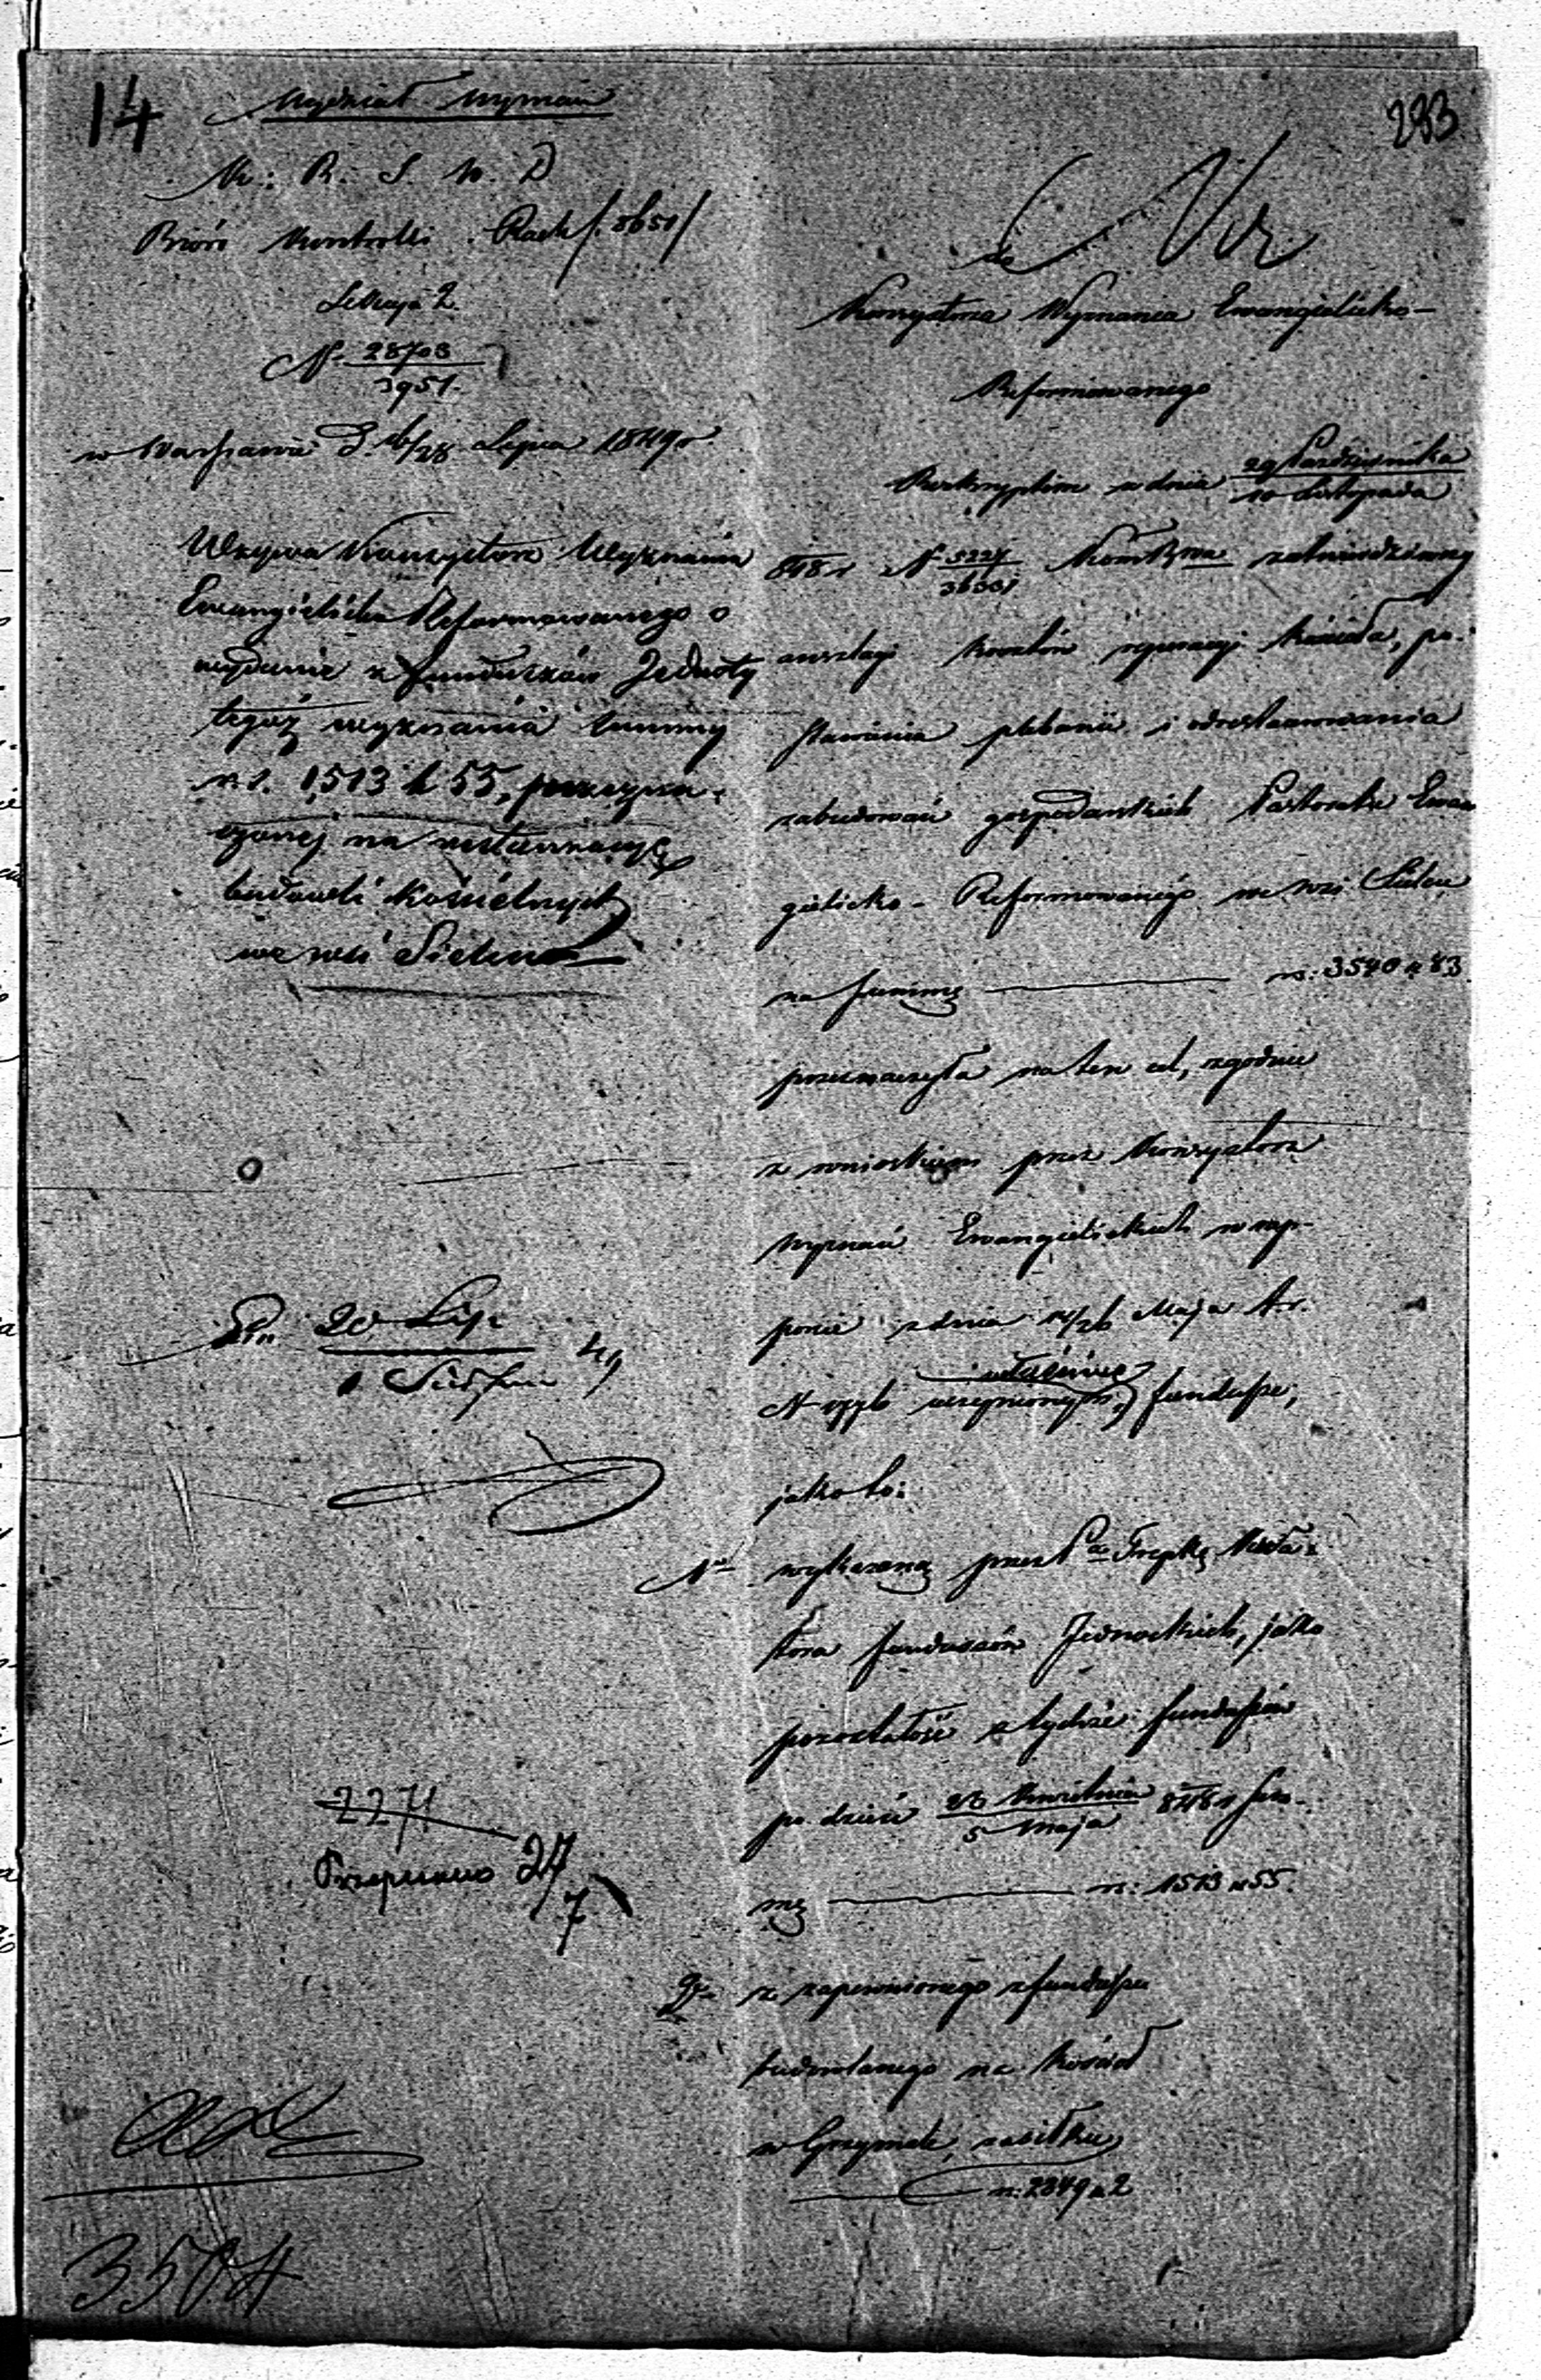 14
Wydział Wyznań
K. R. S. W. D
Biuro Kontrolli Rach /: 8651/
Sekcyja 2.
N. 28703
3951.
w Warszawie D. 16/28 Lipca 1849 r
Wzywa Konsystorz Wyznania
Ewangielicko Reformowanego o
wydanie z funduszów Jednoty
tegoż wyznania summy
rs. 1,513 k 55, przezna-
czonej na restauracyę
budowli kościelnych
we wsi Sielcu
20 Lip
1 Sierpnia 49
2271
Przepisano 27/7
3504
293
do
Konsystorza Wyznania Ewangielicko-
Reformowanego
Reskryptem z dnia 29 Października
10 Listopada
848 r N 5227
36301 Kom Rzwa zatwierdziwszy
anszlagi kosztów reperacyi kościoła, po-
stawienia plebanii i odrestaurowania
zabudowań gospodarskich Pastoratu Ewan
gielicko-Reformowanego we wsi Sielcu
na summę rs: 3540 k 83
przeznaczyła na ten cel, zgodnie
z wnioskiem przez Konsystorz
wyznań Ewangielickich w rap-
porcie z dnia 14/26 Maja t. r.
N uczynionym, właściwe fundusze,
jako to:
1e wykazaną przez Pa Trepkę Kura-
tora funduszów Jednockich, jako
pozostałość z tychże funduszów
po dzień 23 Kwietnia
5 Maja 848 r sum-
mę rs: 1513 k 55.
2e z zapewnionego z funduszu
budowlanego na kościół
w Grzymale, zasiłku